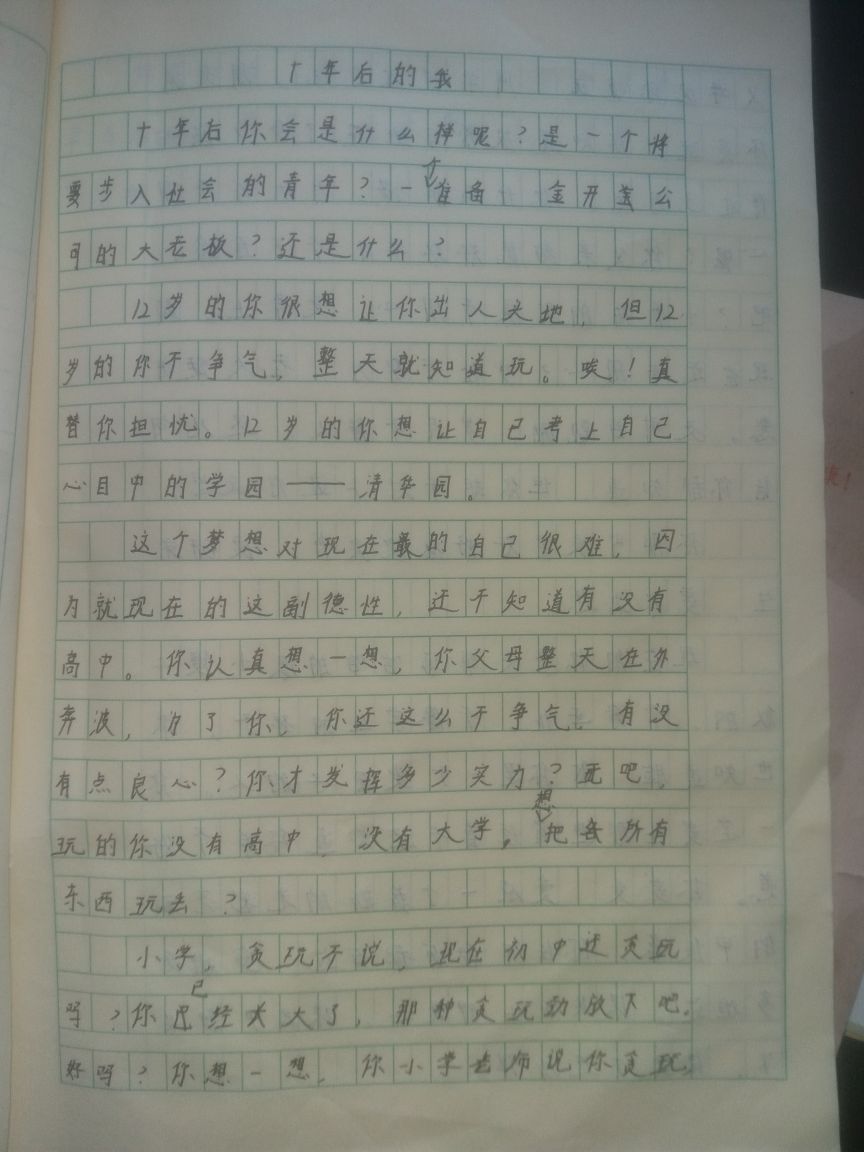 十年后的我
十年后你会是什么样呢？是一个将
要步入社会的青年？一个准备 金开盖公
司的大老板？还是什么？
12岁的你很想让你出人头地，但12
岁的你不争气，整天就知道玩。唉！真
替你担忧。12岁的你想让自己考上自己
心目中的学园——清华园。
这个梦想对现在最的自己很难，因
为就现在的这副德性，还不知道有没有
高中。你认真想一想，你父母整天在外
奔波，为了你，你还这么不争气，有没
有点良心？你才发挥多少实力？玩吧，
玩的你没有高中，没有大学，想把 所有
东西玩丢？
小学，贪玩不说，现在初中还贪玩
吗？你已经长大了，那种贪玩劲放下吧，
好吗？你想一想，你小学老师说你贪玩，